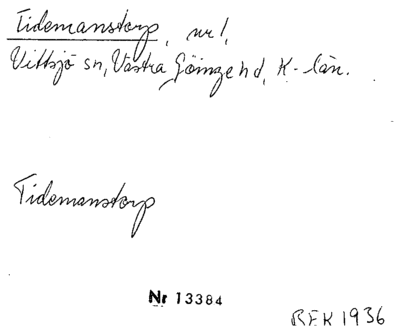 Tidemanstorp, nr 1,
Vittsjö sn, Västra Göinge hd, K-län.
Tidemanstorp
Nr 13384
REK 1936